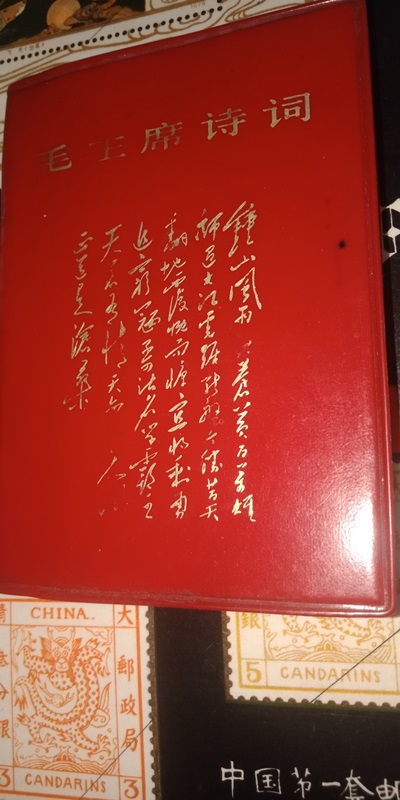 毛主席诗词
鐘山風雨 蒼黄百万雄
師过大江虎踞龙盘今勝昔天
翻地覆慨而慷宜将剩勇
追穷寇不可沽名学霸王
天若有情天亦老人间
正道是滄桑
CHINA.
大郵政局
叁分銀
3 CANDARINS 3
銀
5 CANDARINS
中国第一套邮